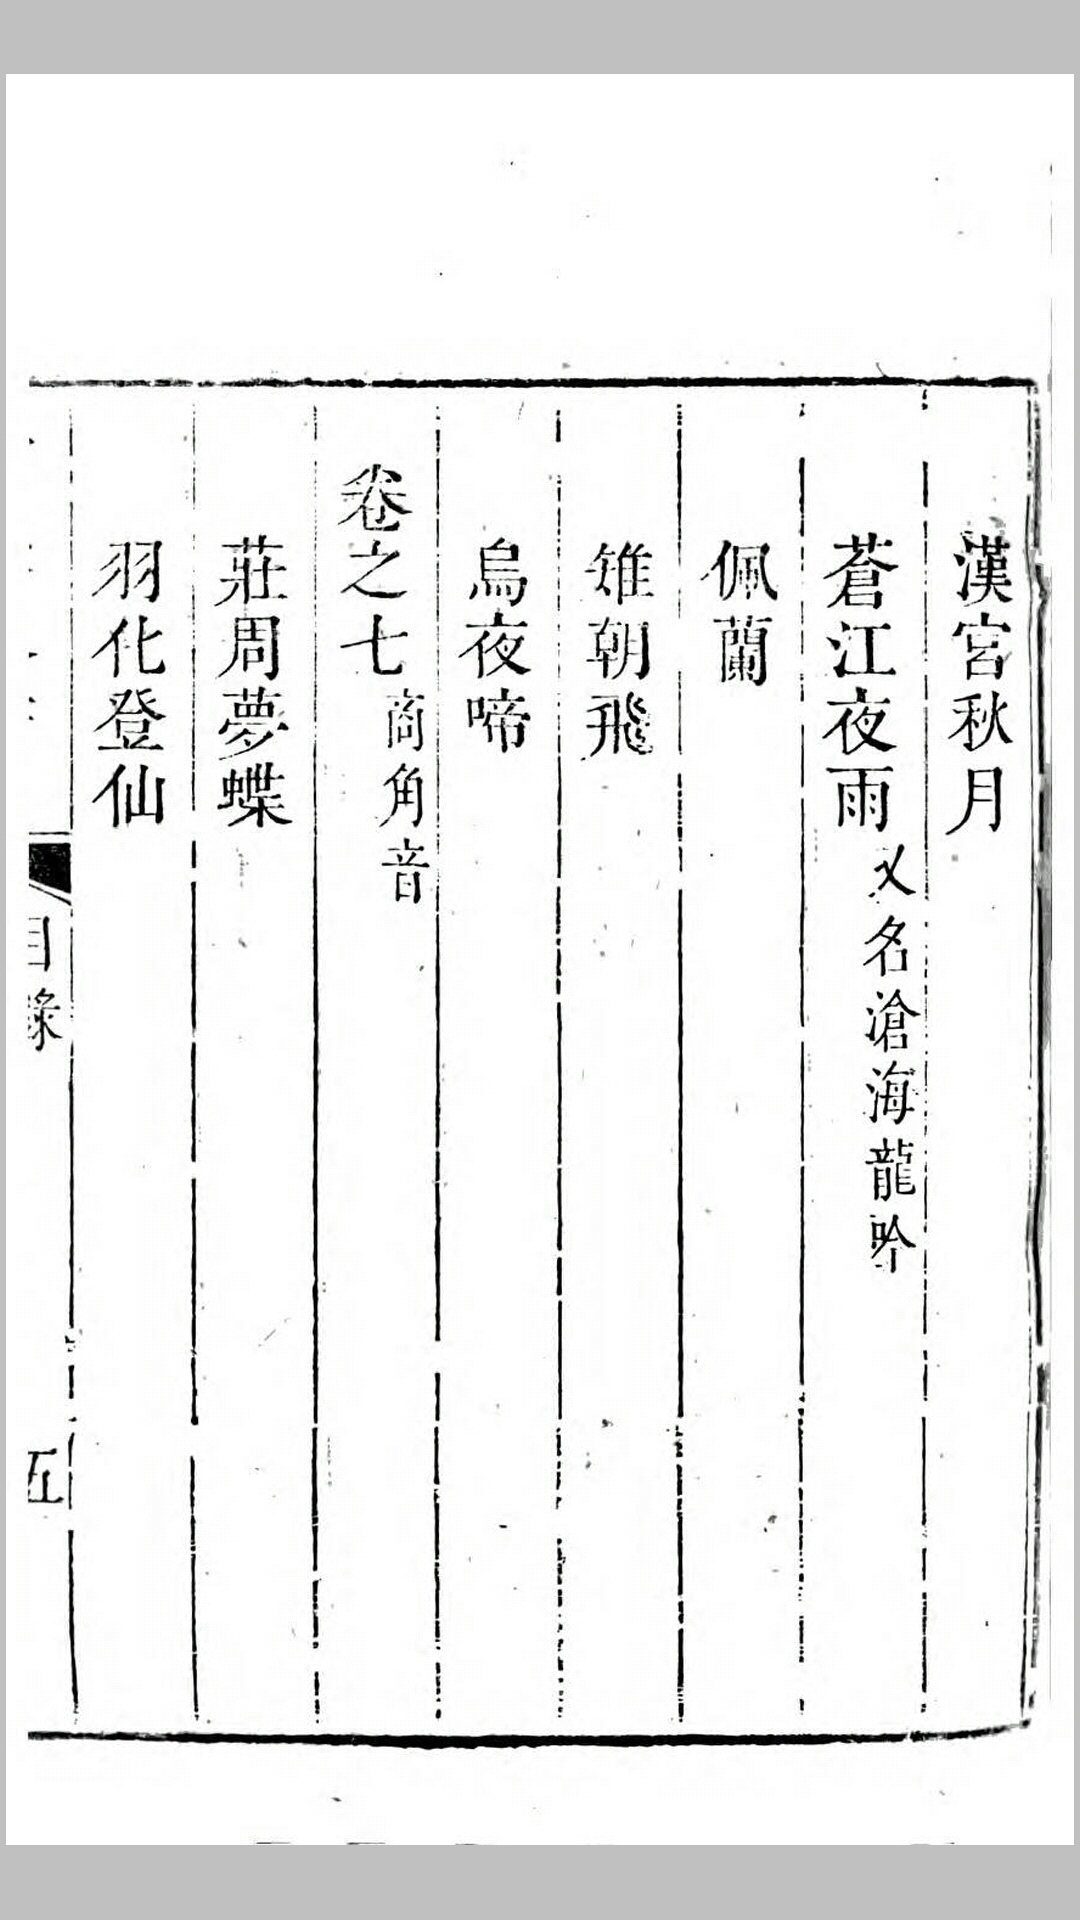 漢宮秋月
蒼江夜雨 又名滄海龍吟
佩蘭
雉朝飛
烏夜啼
卷之七 商角音
莊周夢蝶
羽化登仙
目錄
五